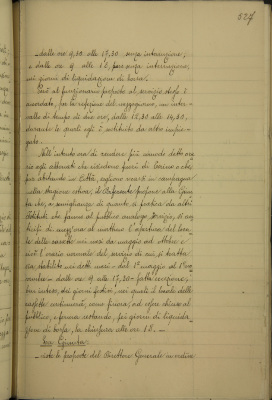 527
dalle ore 9,30 alle 17,30 senza interruzione;
e dalle ore 9 alle 18, pure senza interruzione,
nei giorni di liquidazione di borsa.
Però al funzionario preposto al servizio stesso è
accordato, per la refezione del mezzogiorno, un inter-
vallo di tempo di due ore, dalle 12,30 alle 14,30,
durante le quali egli è sostituito da altro impie-
gato.
Nell'intento ora di rendere più comodo detto ora
rio agli abbonati che risiedono fuori di Torino o che,
pur abitando in Città, sogliono recarsi in campagna
nella stagione estiva, il Direttore propone alla Giun
ta che, a somiglianza di quanto si pratica da altri
Istituti che fanno al pubblico analogo servizio, si an
ticipi di mezz'ora al mattino l'apertura del loca-
le delle cassette nei mesi da maggio ad ottobre e
cioè l'orario normale del servizio di cui si tratta
sia stabilito nei detti mesi - dal 1° maggio al 1° no
vembre - dalle ore 9 alle 17,30 - senza interruzione;
ben inteso, dei giorni festivi, nei quali il locale delle
cassette continuerà, come finora, ad esser chiuso al
pubblico, e ferma restando, pei giorni di liquida-
zione di borsa, la chiusura alle ore 18. -
La Giunta
viste le proposte del Direttore Generale in ordine